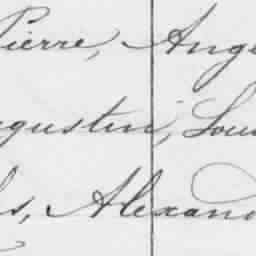 Pierre, Ang
gustin, Lou
s, Alexan